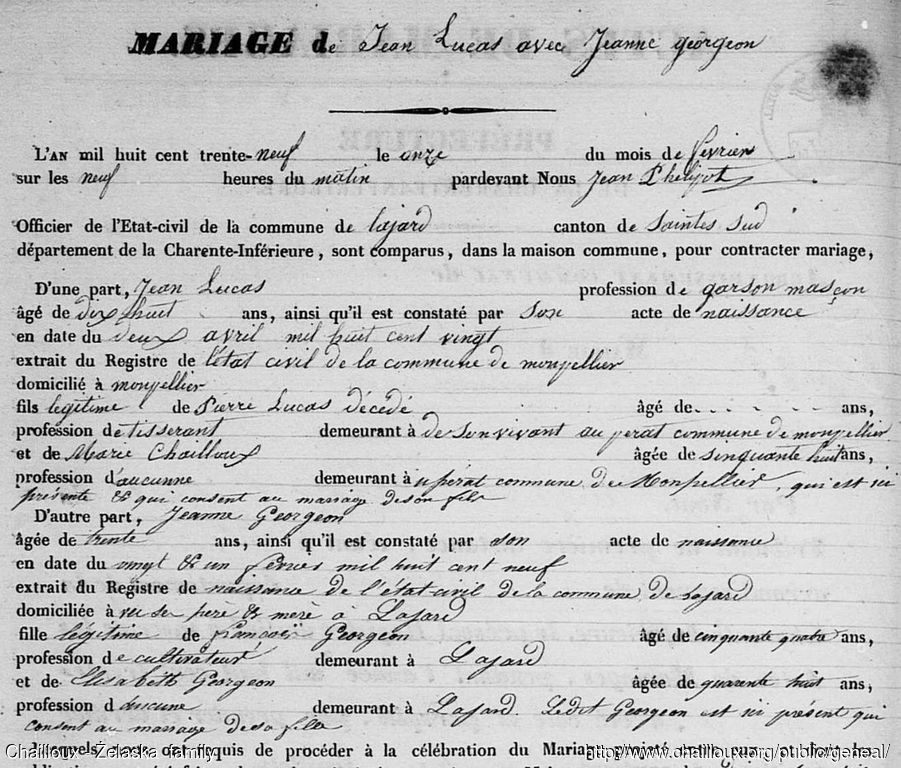 MARIAGE de Jean Lucas avec Jeanne georgeon
L'AN mil huit cent trente-neuf le onze du mois de fevrier
sur les neuf heures du matin pardevant Nous Jean Phelipot
Officier de l'Etat-civil de la commune de lajard canton de Saintes Sud
département de la Charente-Inférieure, sont comparus, dans la maison commune, pour contracter mariage,
D'une part, Jean Lucas profession de garson masçon
âgé de dix huit ans, ainsi qu'il est constaté par son acte de naissance
en date du deux avril mil huit cent vingt
extrait du Registre de l'état civil de la commune de monpellier
domicilié à monpellier
fils legitime de Pierre Lucas décédé âgé de - - - - - - ans,
profession de tisserant demeurant à de son vivant au perat commune de monpellier
et de Marie Chailloux âgée de sinquante huit ans,
profession d'aucunne demeurant à u perat commune de Monpellier, qui est ici
présente & qui consent au mariage de son fils
D'autre part, Jeanne Georgeon
âgée de trente ans, ainsi qu'il est constaté par son acte de naissance
en date du vingt & un fevrier mil huit cent neuf
extrait du Registre de naissance de l'état-civil de la commune de Lajard
domiciliée à ses pere & mere à Lajard
fille légitime de françois Georgeon âgé de cinquante quatre ans,
profession de cultivateur demeurant à Lajard
et de Elisabeth Georgeon âgée de quarente huit ans,
profession d'aucune demeurant à Lajard. Ledit Georgeon est ici présent qui
consent au mariage de sa fille
Lesquels nous ont requis de procéder à la célébration du Mariage projeté entre eux, et dont les
Chailloux - Zelaska family
http://www.chailloux.org/public/geneal/